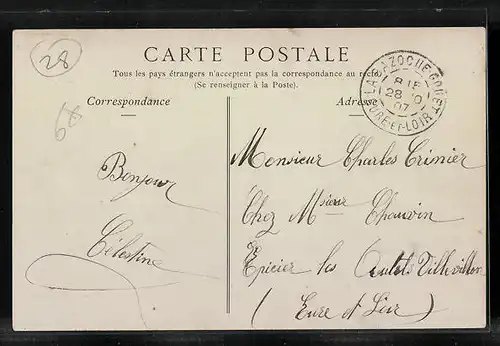 28
CARTE POSTALE
Tous les pays étrangers n'acceptent pas la correspondance au recto
(Se renseigner à la Poste).
Correspondance
Adresse
LA BAZOCHE-GOUET
28
07
EURE-ET-LOIR
Bonjour
Célestine
Monsieur Charles Crinier
Chez Msieur Chauvin
Epicier les Autels Tillevillon
(Eure et Loir)